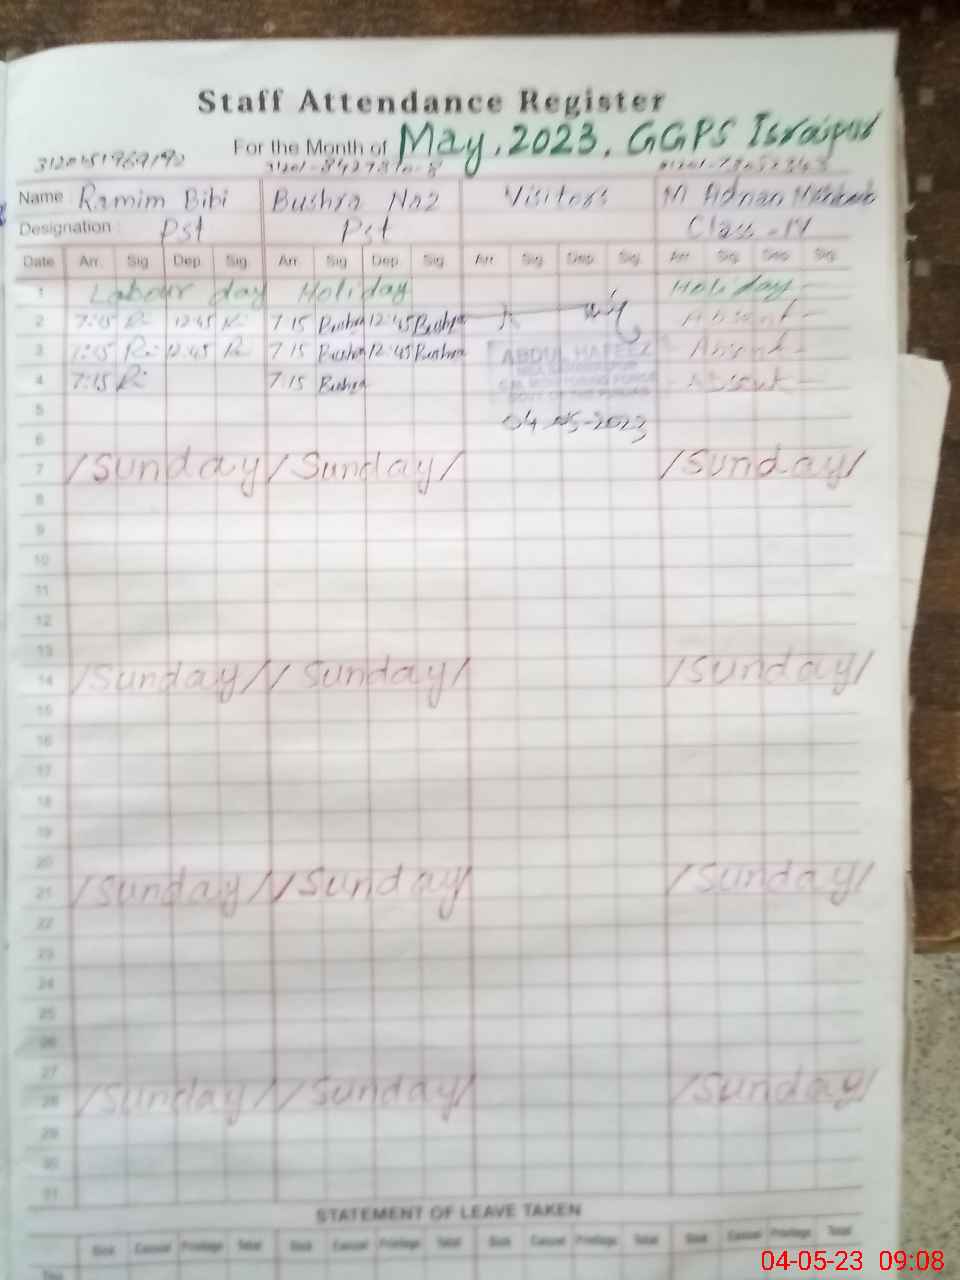 Staff Attendance Register
For the Month of May, 2023. GGPS Israipur
Name Ramim Bibi Bushra Naz Visitors M. Adnan
Designation : Pst Pst Class - IV
Date Arr. Sig. Dep. Sig. Arr. Sig. Dep. Sig. Arr. Sig. Dep. Sig. Arr. Sig. Dep. Sig.
1 Labour day Holiday Holiday -
2 7:15 12:45 7 15 Bushra 12:45 Bushra Absent -
3 7:15 12:45 7 15 Bushra 12:45 Bushra Absent -
ABDUL HAFEEZ
4 7:15 7 15 Bushra - Absent -
5 04-05-2023
6
7 /Sunday/ /Sunday/ /Sunday/
8
9
10
11
12
13
14 /Sunday/ /Sunday/ /Sunday/
15
16
17
18
19
20
21 /Sunday/ /Sunday/ /Sunday/
22
23
24
25
26
27
28 /Sunday/ /Sunday/ /Sunday/
29
30
31
STATEMENT OF LEAVE TAKEN
Sick Casual Privilege Total Sick Casual Privilege Total Sick Casual Privilege Total Sick Casual Privilege Total
04-05-23 09:08